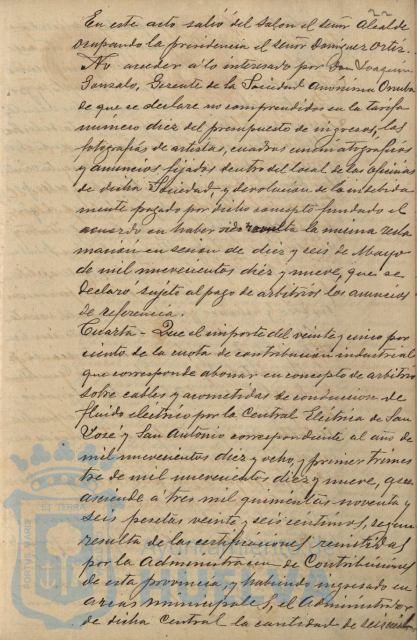 En este acto salió del Salon el señor Alcalde
ocupando la presidencia el señor Dominguez Ortiz.
No acceder a lo interesado por Don Joaquin
Gonzalo, Gerente de la Sociedad Anonima Onuba
de que se declare no comprendidos en la tarifa
número diez del presupuesto de ingresos, las
fotografias de artistas, cuadros cinematograficos
y anuncios fijados dentro del local de las oficinas
de dicha Sociedad y devolucion de lo indebida
mente pagado por dicho concepto fundado el
acuerdo en haber sido resuelta la misma recla
macion en sesion de diez y seis de Mayo
de mil nuevecientos diez y nueve, que se
declaró sujeto al pago de arbitrios los anuncios
de referencia.
Cuarta - Que el importe del veinte y cinco por
ciento de la cuota de contribucion industrial
que corresponde abonar en concepto de arbitrio
sobre cables y acometidas de conduccion de
fluido eléctrico por la Central Eléctrica de San
José y San Antonio correspondiente al año de
mil nuevecientos diez y ocho, y primer trimes
tre de mil nuevecientos diez y nueve, que
asciende á tres mil quinientas noventa y
seis pesetas veinte y seis centimos, segun
resulta de las certificaciones remitidas
por la Administracion de Contribuciones
de esta provincia, y habiendo ingresado en
arcas municipales, el Administrador
de dicha Central la cantidad de
PORTUS MARIS
ET TERRÆ
HUELVA